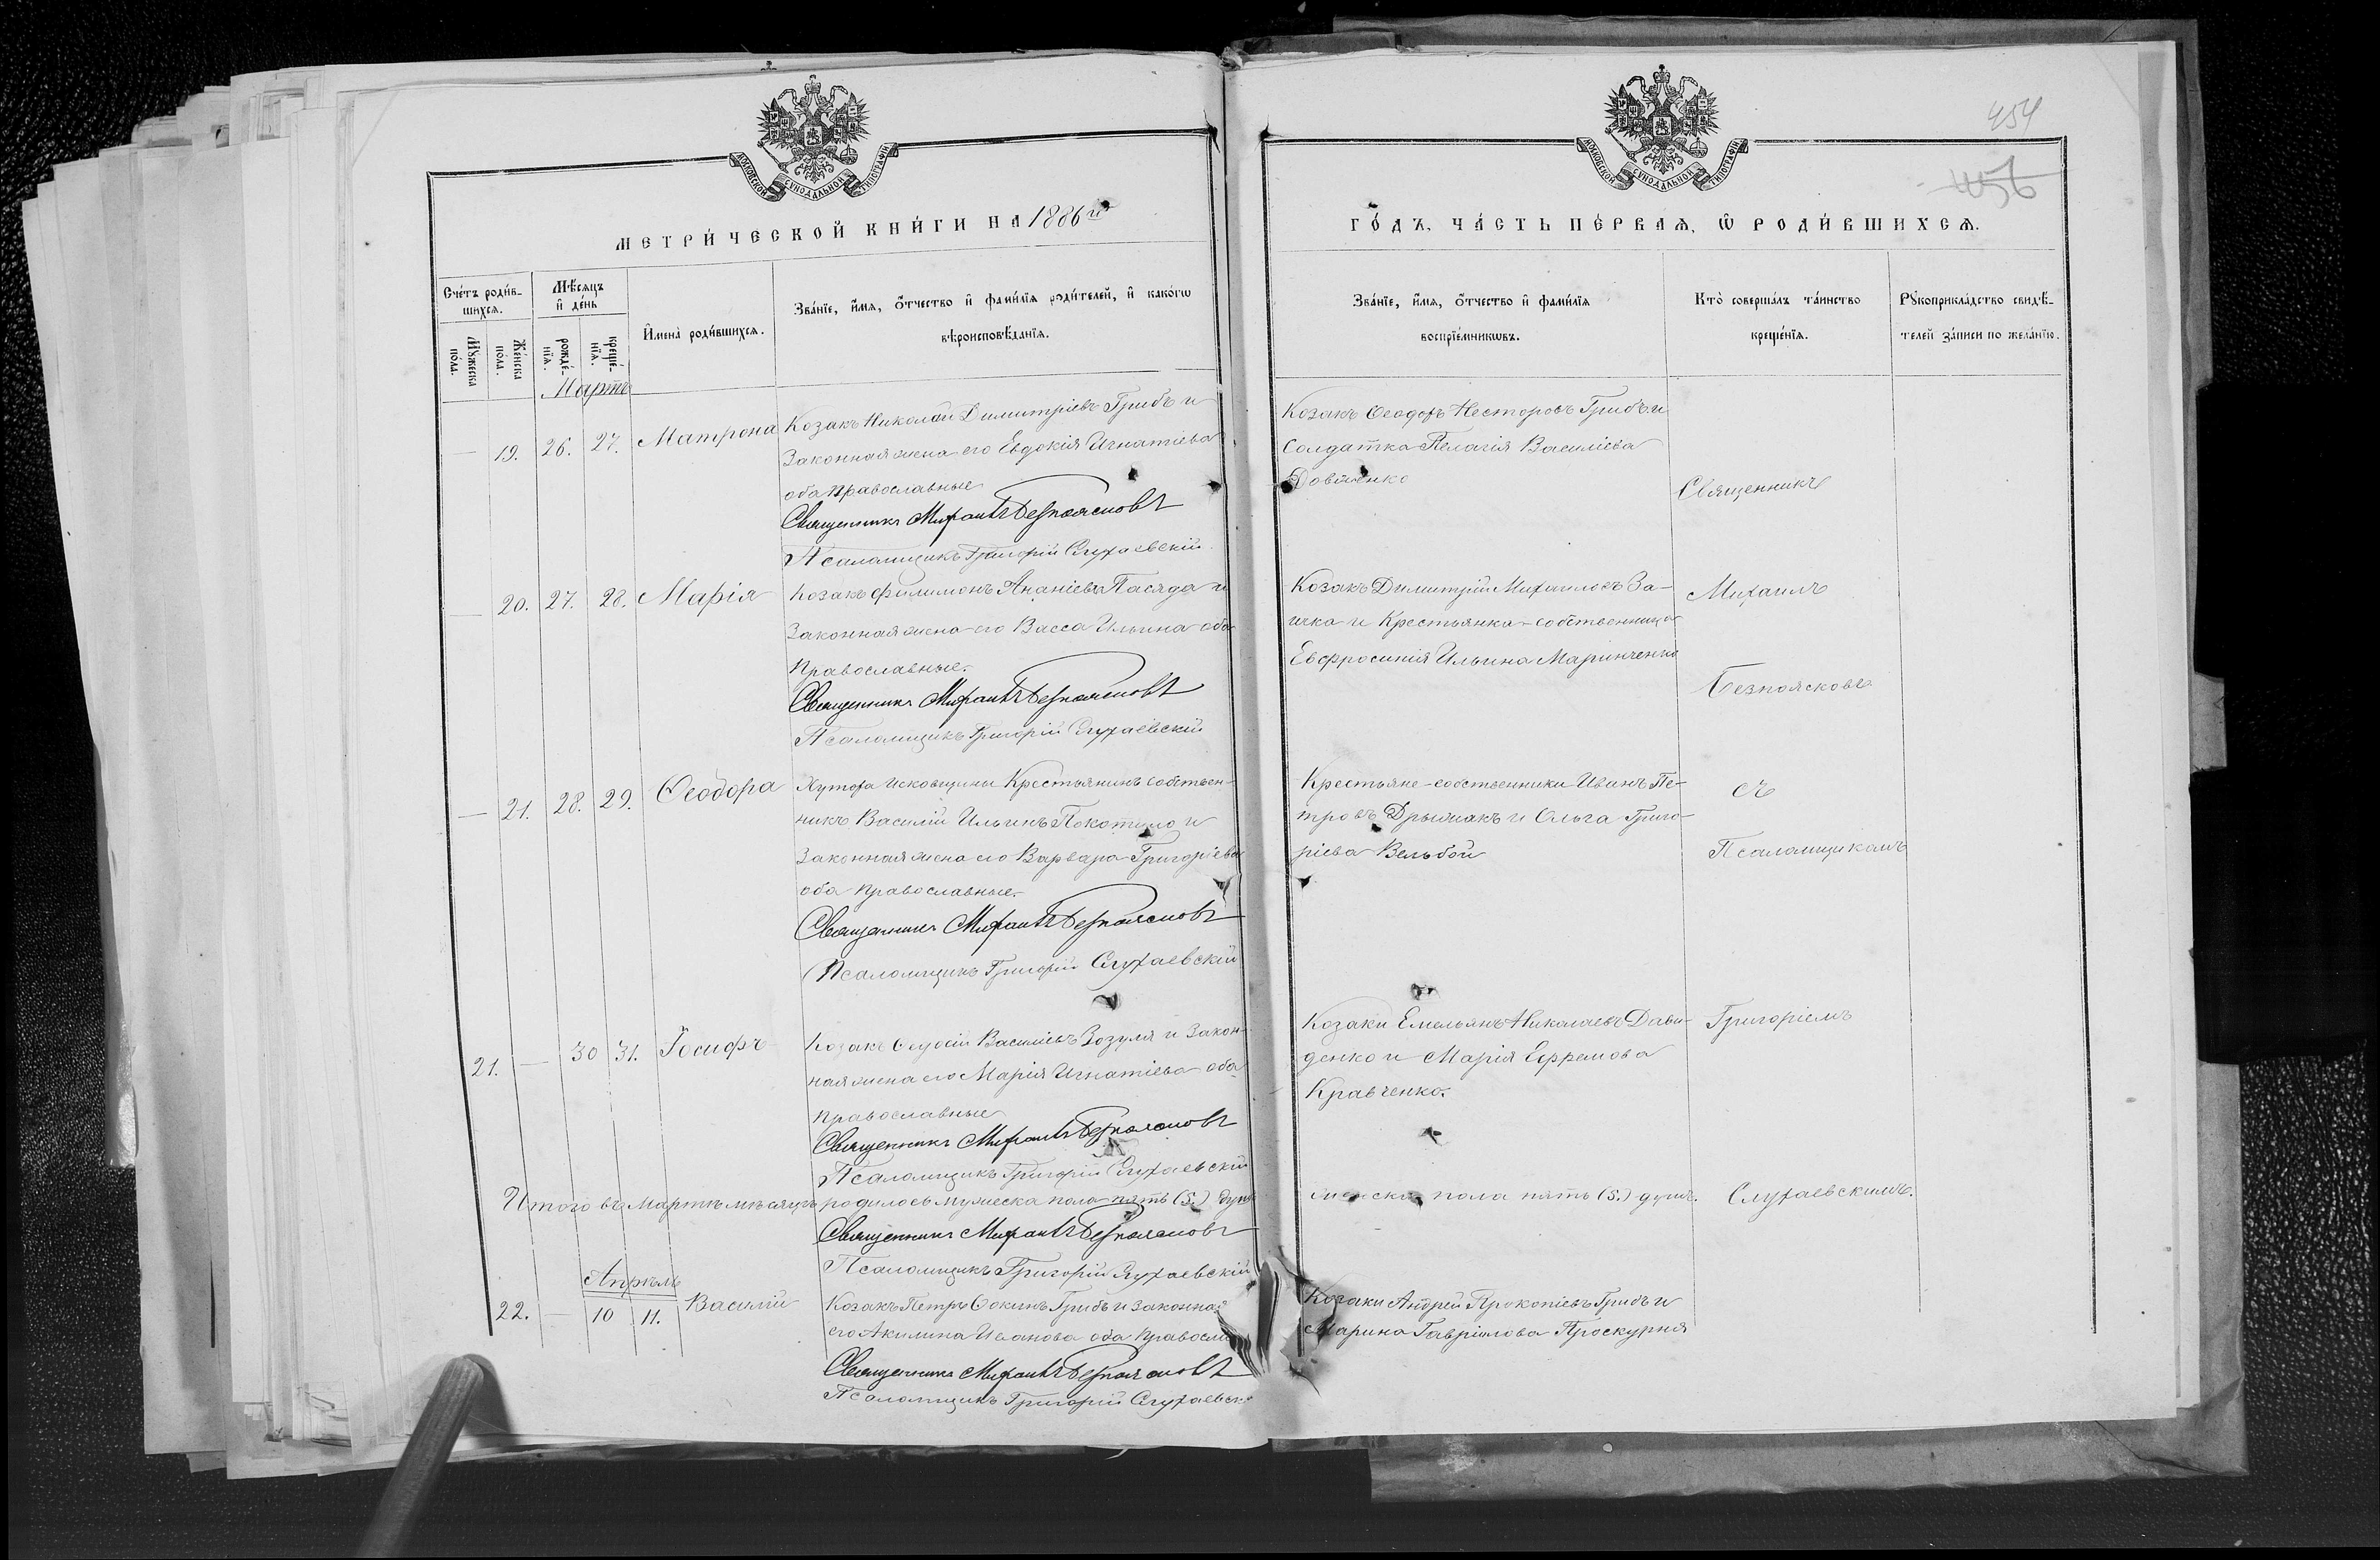 МОСКОВСКОЙ СУНОДАЛЬНОЙ ТИПОГРАФІИ
МЕТРИ́ЧЕСКОЙ КНИ́ГИ НА 1886 й
Сче́тъ роди́в-
шихся.
Мѣ́сяцъ
и҆ де́нь
Мꙋ́жеска
по́ла.
Же́нска
по́ла.
рожде́-
нїя.
креще́-
нїя.
И҆мена̀ роди́вшихся.
Зва́нїе, и҆́мя, ѻ҆́тчество и҆ фами́лїя роди́телей, и҆ како́гѡ
вѣроисповѣ́данїя.
Мартъ
— 19. 26. 27. Матрона Козакъ Николай Димитріевъ Грибъ и
Законная жена его Евдокія Игнатіева
оба православные
Священникъ Михаилъ Безпоясковъ
Псаломщикъ Григорій Слухаевскій
— 20. 27. 28. Марія Козакъ Филимонъ Ананіевъ Пасяда и
Законная жена его Васса Ильина оба
Православные.
Священникъ Михаилъ Безпоясковъ
Псаломщикъ Григорій Слухаевскій
— 21. 28. 29. Ѳеодора Хутора Исковщины Крестьянинъ собствен-
никъ Василій Ильинъ Покотило и
Законная жена его Варвара Григоріева
оба православные.
Священникъ Михаилъ Безпоясковъ
Псаломщикъ Григорій Слухаевскій
21. — 30 31. Іосифъ Козакъ Василіевъ Зозуля и Закон-
ная жена его Марія Игнатіева оба
православные
Священникъ Михаилъ Безпоясковъ
Псаломщикъ Григорій Слухаевскій
Итого въ Мартѣ мѣсяцѣ родилось мужеска пола пять (5.) душъ
Священникъ Михаилъ Безпоясковъ
Псаломщикъ Григорій Слухаевскій
Апрѣль
22. — 10 11. Василій Козакъ Петръ Ѳокинъ Грибъ и законная
его Акилина Иванова оба правосла
Священникъ Михаилъ Безпоясковъ
Псаломщикъ Григорій Слухаевск
454
456
МОСКОВСКОЙ СУНОДАЛЬНОЙ ТИПОГРАФІИ
ГО́ДЪ, ЧА́СТЬ ПЕ́РВАЯ, Ѡ҆ РОДИ́ВШИХСЯ.
Зва́нїе, и҆́мя, ѻ҆́тчество и҆ фами́лїя
воспрїе́мникѡвъ.
Кто̀ соверша́лъ та́инство
креще́нїя.
Рꙋкоприкла́дство свидѣ́-
телей за́писи по жела́нїю.
Козакъ Ѳеодоръ Несторовъ Грибъ и
Солдатка Пелагія Василіева
Довженко
Священникъ
Козакъ Димитрій Михаиловъ За-
ичка и Крестьянка-собственница
Евфросинія Ильина Маринченко
Михаилъ
Безпоясковъ
Крестьяне-собственники Иванъ Пе-
тровъ Дрымакъ и Ольга Григо-
ріева Вельбой
съ
Псаломщикомъ
Козаки Емельянъ Николаевъ Дави-
денко и Марія Ефремова
Кравченко.
Григоріемъ
женска пола пять (5.) душъ. Слухаевскимъ.
Козаки Андрей Прокопіевъ Грибъ и
Марина Гавріилова Проскурня